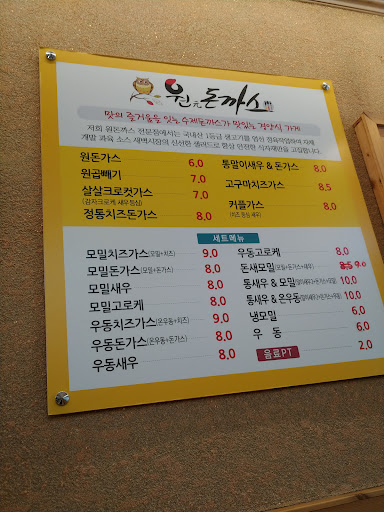 원元돈까스
맛의 즐거움을 잇는 수제돈까스가 맛있는 경양식 가게
저희 원돈까스 전문점에서는 국내산 1등급 생고기를 엄선
개발 과육 소스 새벽시장의 신선한 샐러드로 항상 안전한 식자재만을 고집합니다.
원돈가스 6.0
원곱빼기 7.0
살살크로컷가스 7.0
(감자크로케 새우등심)
정통치즈돈가스 8.0
통말이새우 & 돈가스 8.0
고구마치즈가스 8.5
커플가스 8.0
(치즈 등심 새우)
세트메뉴
모밀치즈가스(모밀+치즈) 9.0
모밀돈가스(모밀+돈가스) 8.0
모밀새우 8.0
모밀고로케 8.0
우동치즈가스(온우동+치즈) 9.0
우동돈가스(온우동+돈가스) 8.0
우동새우 8.0
우동고로케 8.0
돈새모밀(모밀+돈가스+새우) 8.5 9.0
통새우 & 모밀(말이새우+돈가스+모밀) 10.0
통새우 & 온우동(말이새우+돈가스+우동) 10.0
냉모밀 6.0
우 동 6.0
음료PT 2.0